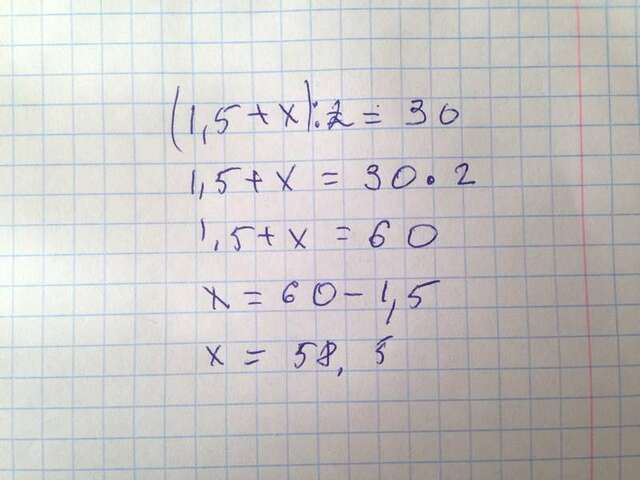 (1,5+x):2=30
1,5+x=30·2
1,5+x=60
x=60-1,5
x=58,5